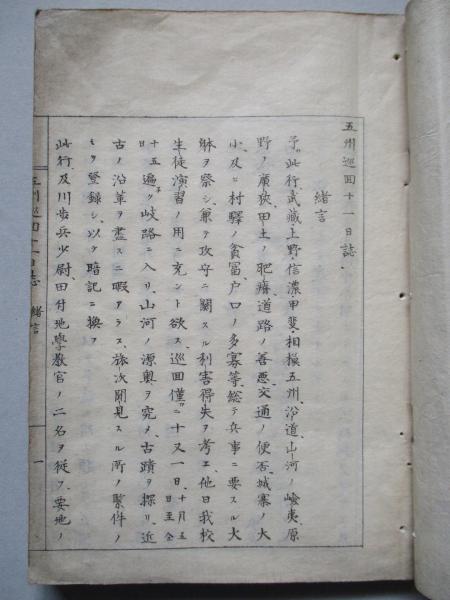 五州巡回十一日誌
緒言
予此行武蔵上野信濃甲斐相模五州沿道山河ノ嶮夷原
野ノ廣狹田土ノ肥瘠道路ノ善悪交通ノ便否城寨ノ大
小及ヒ村驛ノ貧富戸口ノ多寡等総テ兵事ニ要スル大
躰ヲ察シ兼テ攻守ニ關スル利害得失ヲ考エ他日我校
生徒演習ノ用ニ充ント欲ス巡回僅ニ十又一日十月五日至仝十五
遍ク岐路ニ入リ山河ノ源奥ヲ究メ古蹟ヲ探リ近
古ノ沿革ヲ盡スニ暇アラス旅次聞見スル所ノ緊件ノ
ミヲ登録シ以テ暗記ニ換フ
此行及川歩兵少尉田付地學教官ノ二名ヲ従フ要地ノ
五州巡回十一日誌 緒言 一